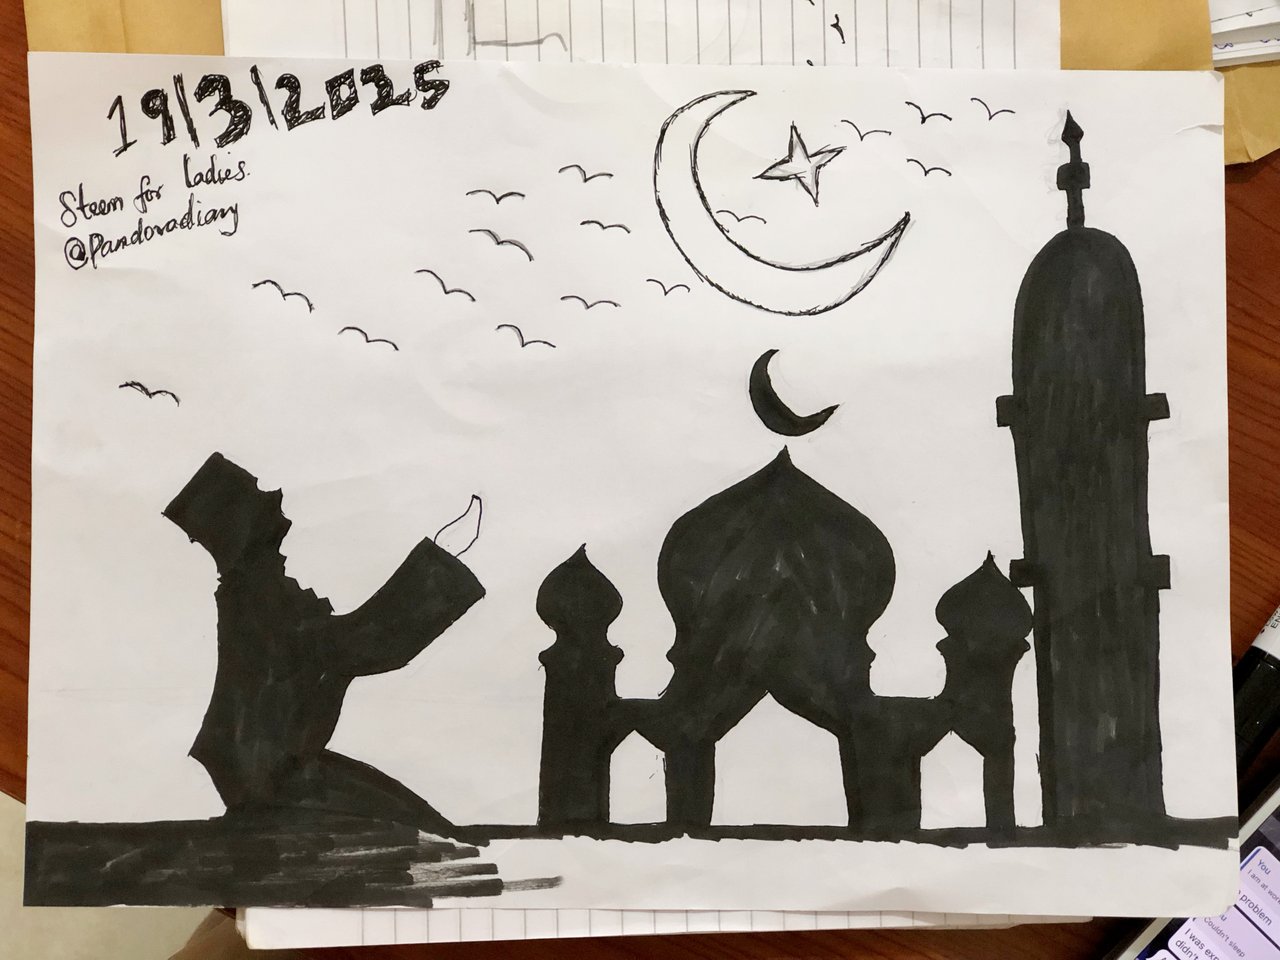 19/3/2025
Steem for ladies.
@Pandoradiary
You
I am at
problem
Couldn't sleep
I was
didn't